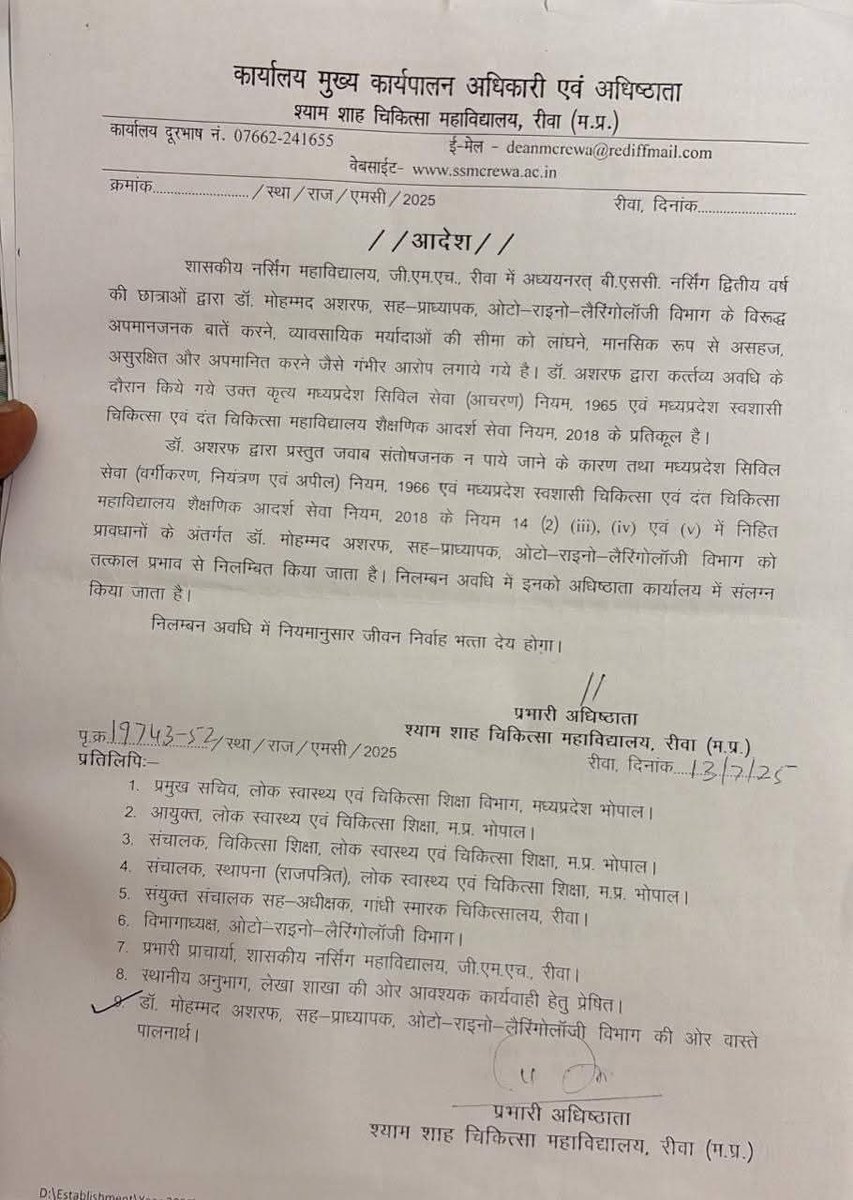 कार्यालय मुख्य कार्यपालन अधिकारी एवं अधिष्ठाता
श्याम शाह चिकित्सा महाविद्यालय, रीवा (म.प्र.)
कार्यालय दूरभाष नं. 07662-241655 ई-मेल - deanmcrewa@rediffmail.com
वेबसाईट- www.ssmcrewa.ac.in
क्रमांक............................/स्था/राज/एमसी/2025 रीवा, दिनांक............................
//आदेश//
शासकीय नर्सिंग महाविद्यालय, जी.एम.एच., रीवा में अध्ययनरत् बी.एससी. नर्सिंग द्वितीय वर्ष
की छात्राओं द्वारा डॉ. मोहम्मद अशरफ, सह-प्राध्यापक, ओटो-राइनो-लैरिंगोलॉजी विभाग के विरूद्ध
अपमानजनक बातें करने, व्यावसायिक मर्यादाओं की सीमा को लांघने, मानसिक रूप से असहज,
असुरक्षित और अपमानित करने जैसे गंभीर आरोप लगाये गये है। डॉ. अशरफ द्वारा कर्त्तव्य अवधि के
दौरान किये गये उक्त कृत्य मध्यप्रदेश सिविल सेवा (आचरण) नियम, 1965 एवं मध्यप्रदेश स्वशासी
चिकित्सा एवं दंत चिकित्सा महाविद्यालय शैक्षणिक आदर्श सेवा नियम, 2018 के प्रतिकूल है।
डॉ. अशरफ द्वारा प्रस्तुत जवाब संतोषजनक न पाये जाने के कारण तथा मध्यप्रदेश सिविल
सेवा (वर्गीकरण, नियंत्रण एवं अपील) नियम, 1966 एवं मध्यप्रदेश स्वशासी चिकित्सा एवं दंत चिकित्सा
महाविद्यालय शैक्षणिक आदर्श सेवा नियम, 2018 के नियम 14 (2) (iii), (iv) एवं (v) में निहित
प्रावधानों के अंतर्गत डॉ. मोहम्मद अशरफ, सह-प्राध्यापक, ओटो-राइनो-लैरिंगोलॉजी विभाग को
तत्काल प्रभाव से निलम्बित किया जाता है। निलम्बन अवधि में इनको अधिष्ठाता कार्यालय में संलग्न
किया जाता है।
निलम्बन अवधि में नियमानुसार जीवन निर्वाह भत्ता देय होगा।
प्रभारी अधिष्ठाता
श्याम शाह चिकित्सा महाविद्यालय, रीवा (म.प्र.)
पृ.क्र.19743-52/स्था/राज/एमसी/2025 रीवा, दिनांक....13/7/25
प्रतिलिपि:-
1. प्रमुख सचिव, लोक स्वास्थ्य एवं चिकित्सा शिक्षा विभाग, मध्यप्रदेश भोपाल।
2. आयुक्त, लोक स्वास्थ्य एवं चिकित्सा शिक्षा, म.प्र. भोपाल।
3. संचालक, चिकित्सा शिक्षा, लोक स्वास्थ्य एवं चिकित्सा शिक्षा, म.प्र. भोपाल।
4. संचालक, स्थापना (राजपत्रित), लोक स्वास्थ्य एवं चिकित्सा शिक्षा, म.प्र. भोपाल।
5. संयुक्त संचालक सह-अधीक्षक, गांधी स्मारक चिकित्सालय, रीवा।
6. विभागाध्यक्ष, ओटो-राइनो-लैरिंगोलॉजी विभाग।
7. प्रभारी प्राचार्या, शासकीय नर्सिंग महाविद्यालय, जी.एम.एच., रीवा।
8. स्थानीय अनुभाग, लेखा शाखा की ओर आवश्यक कार्यवाही हेतु प्रेषित।
9. डॉ. मोहम्मद अशरफ, सह-प्राध्यापक, ओटो-राइनो-लैरिंगोलॉजी विभाग की ओर वास्ते
पालनार्थ।
प्रभारी अधिष्ठाता
श्याम शाह चिकित्सा महाविद्यालय, रीवा (म.प्र.)